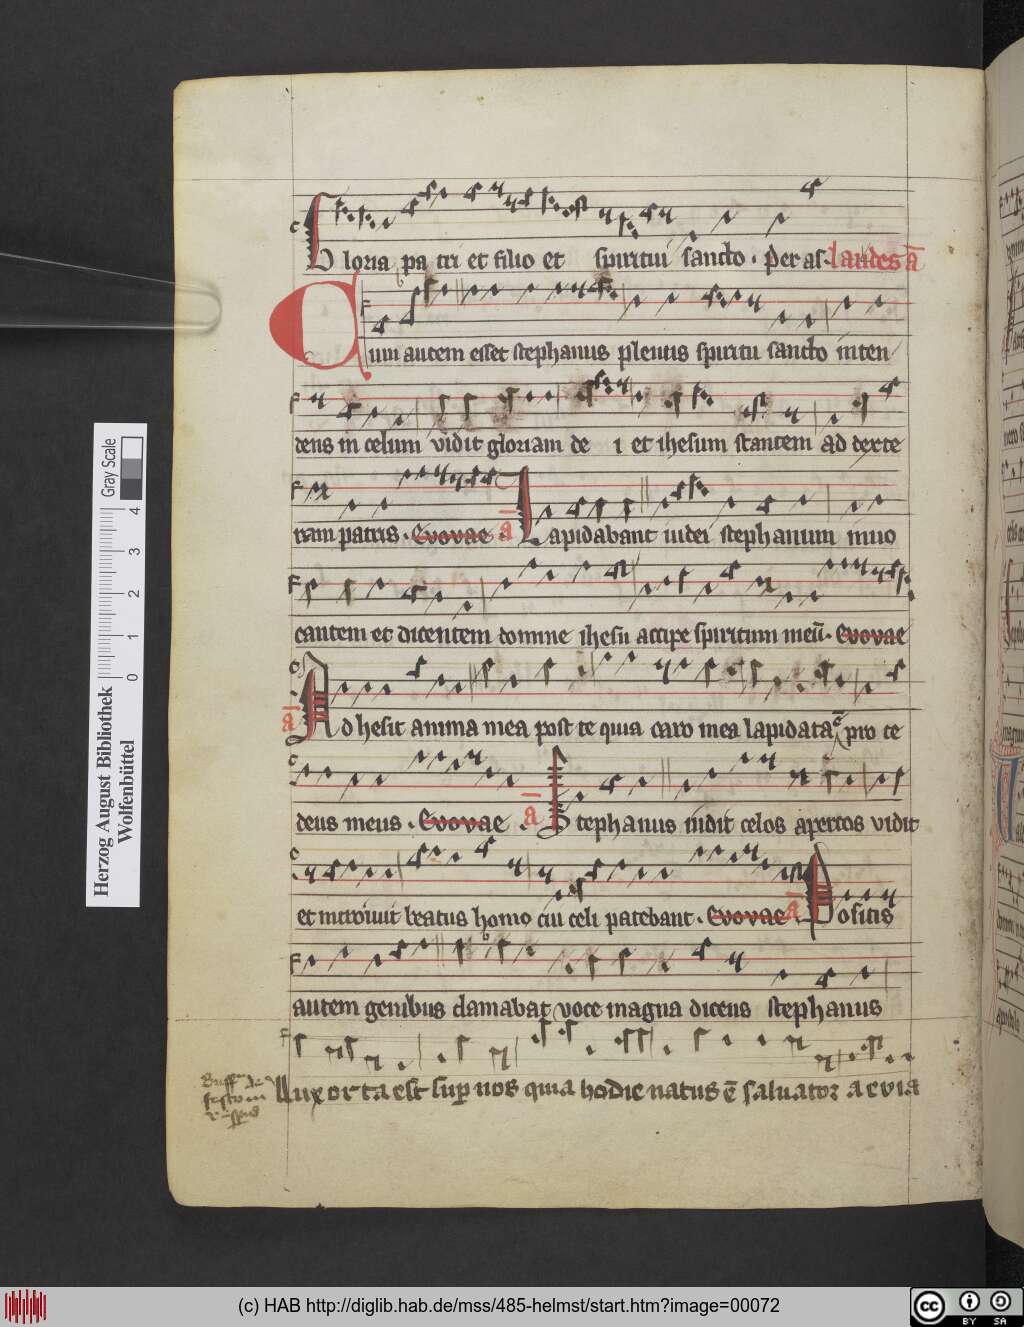 Gloria pa tri et filio et spiritui sancto. Per as. laudes a
Cum autem esset stephanus plenus spiritu sancto inten
dens in celum vidit gloriam de i et ihesum stantem ad dexte
ram patris. Evovae. a Lapidabant iudei stephanum inuo
cantem et dicentem domine ihesu accipe spiritum meū. Evovae
a Adhesit anima mea post te quia caro mea lapidata ē pro te
deus meus. Evovae. a Stephanus uidit celos apertos vidit
et introiuit beatus homo cui celi patebant. Evovae a Positis
autem genibus clamabat voce magna dicens stephanus
Lux orta est sup nos quia hodie natus ē saluator aevia
Herzog August Bibliothek
Wolfenbüttel
Gray Scale
0 1 2 3 4
(c) HAB http://diglib.hab.de/mss/485-helmst/start.htm?image=00072
cc BY SA